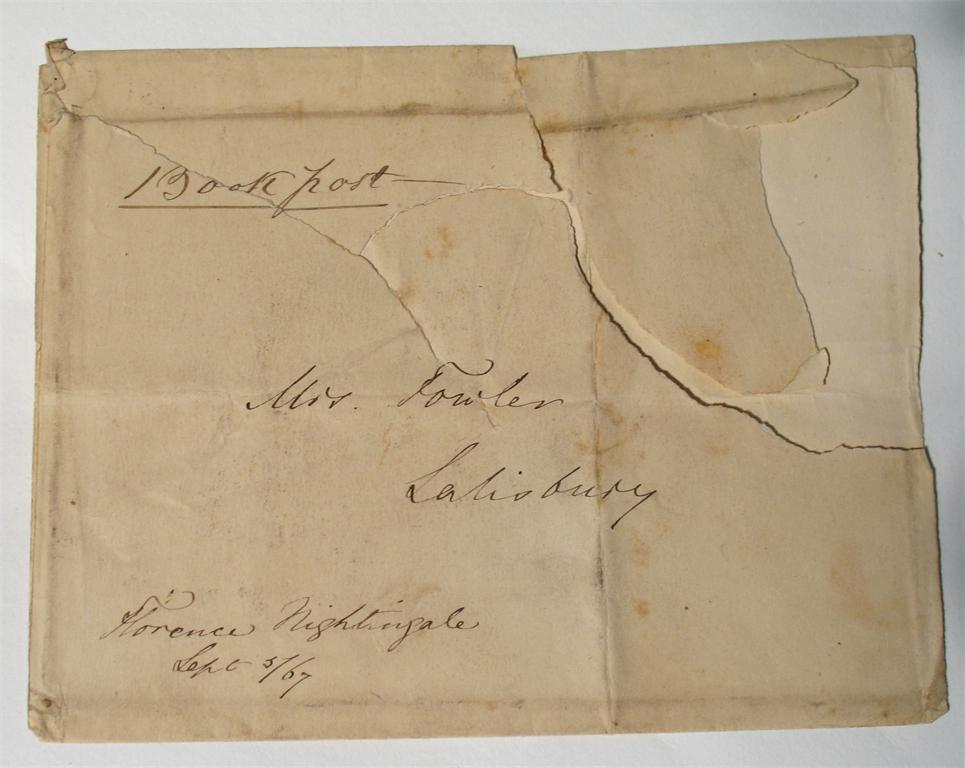 Book post
Mrs. Fowler
Salisbury
Florence Nightingale
Sept 5/67